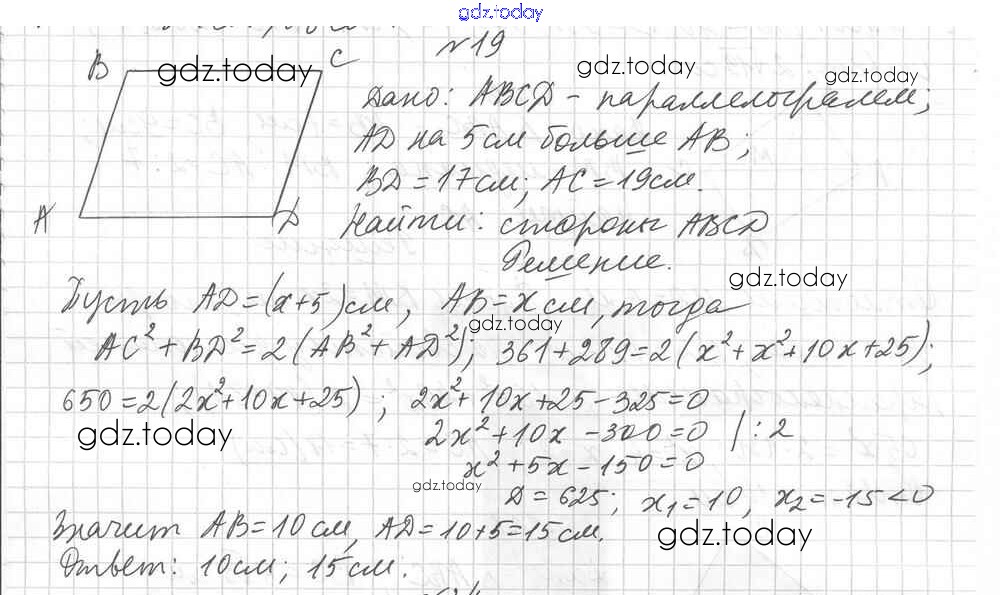 gdz.today
№19
B
gdz.today
C
gdz.today
gdz.today
Дано: ABCD - параллелограмм;
AD на 5см больше AB;
BD=17см; AC=19см.
A
D
Найти: стороны ABCD
Решение.
gdz.today
Пусть AD=(x+5)см, AB=xсм, тогда
gdz.today
AC²+BD²=2(AB²+AD²); 361+289=2(x²+x²+10x+25);
650=2(2x²+10x+25); 2x²+10x+25-325=0
gdz.today
2x²+10x-300=0 |:2
x²+5x-150=0
gdz.today
D=625; x₁=10, x₂=-15<0
Значит AB=10см, AD=10+5=15см.
gdz.today
Ответ: 10см; 15см.